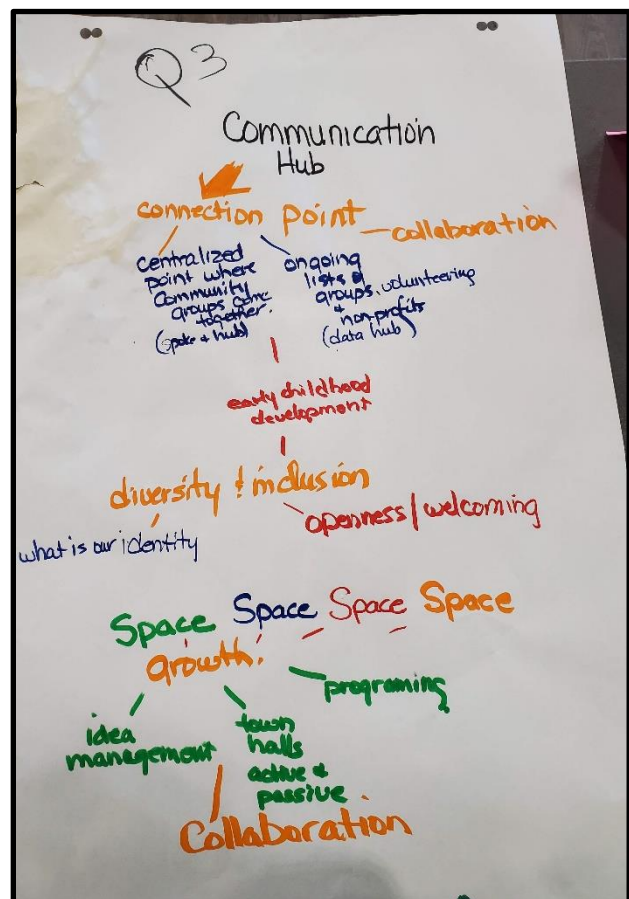 Q3
Communication
Hub
connection point
collaboration
centralized
point where
community
groups come
together.
(spoke & hub)
ongoing
lists of
groups, volunteering
&
non-profits
(data hub)
early childhood
development
diversity & inclusion
openness/welcoming
what is our identity
Space Space Space Space
growth.
programing
idea
management
town
halls
active &
passive
Collaboration